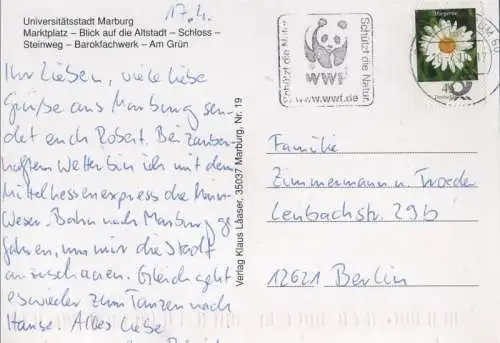 Universitätsstadt Marburg
Marktplatz – Blick auf die Altstadt – Schloss –
Steinweg – Barokfachwerk – Am Grün
17.4.
Ihr Lieben, viele liebe
Grüße aus Marburg sen-
det euch Robert. Bei zauber-
haftem Wetter bin ich mit dem
Mittelhessenexpress die Main-
Weser-Bahn nach Marburg ge-
fahren, um mir die Stadt
anzuschauen. Gleich geht
es wieder zum Tanzen nach
Hause. Alles Liebe
Verlag Klaus Laaser, 35037 Marburg, Nr. 19
Schützt die Natur
WWF
www.wwf.de
Schützt die Natur
Margerite
45
Familie
Zimmermann u.
Lenbachstr. 29b
12621 Berlin